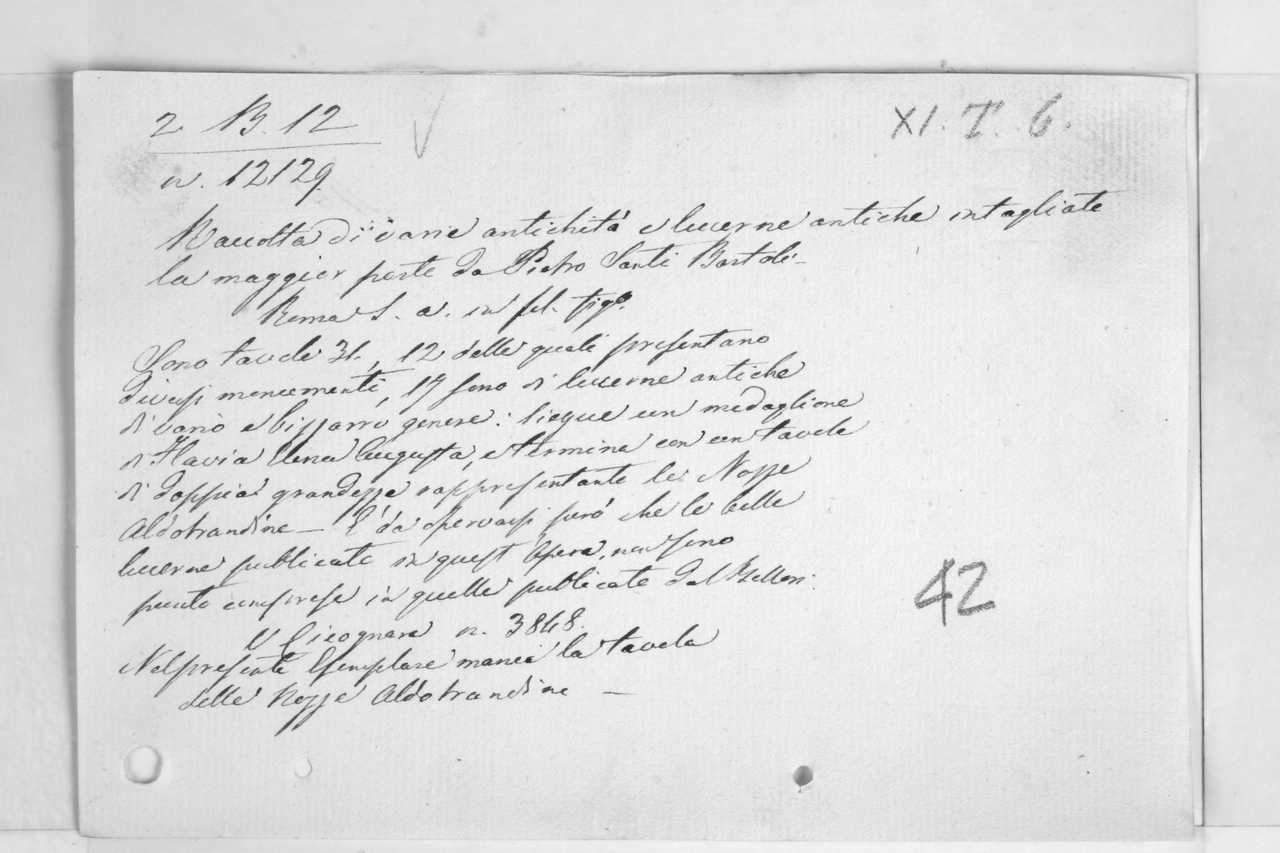 2 B. 12
XI. T. 6.
n. 12129
Raccolta di varie antichità e lucerne antiche intagliate
la maggior parte da Pietro Santi Bartoli –
Roma S. a. in fol. figo.
Sono tavole 31, 12 delle quali presentano
diversi monumenti, 17 sono di lucerne antiche
di vario e bizzarro genere: siegue un medaglione
di Flavia Elena Augusta, e termina con un tavola
di doppia grandezza rappresentante le Nozze
Aldobrandine – E' da osservarsi però che le belle
lucerne publicate in quest Opera, non sono
punto comprese in quelle publicate dal Bellori
V. Cicognara n. 3848.
Nel presente Esemplare manca la tavola
delle Nozze Aldobrandine –
42